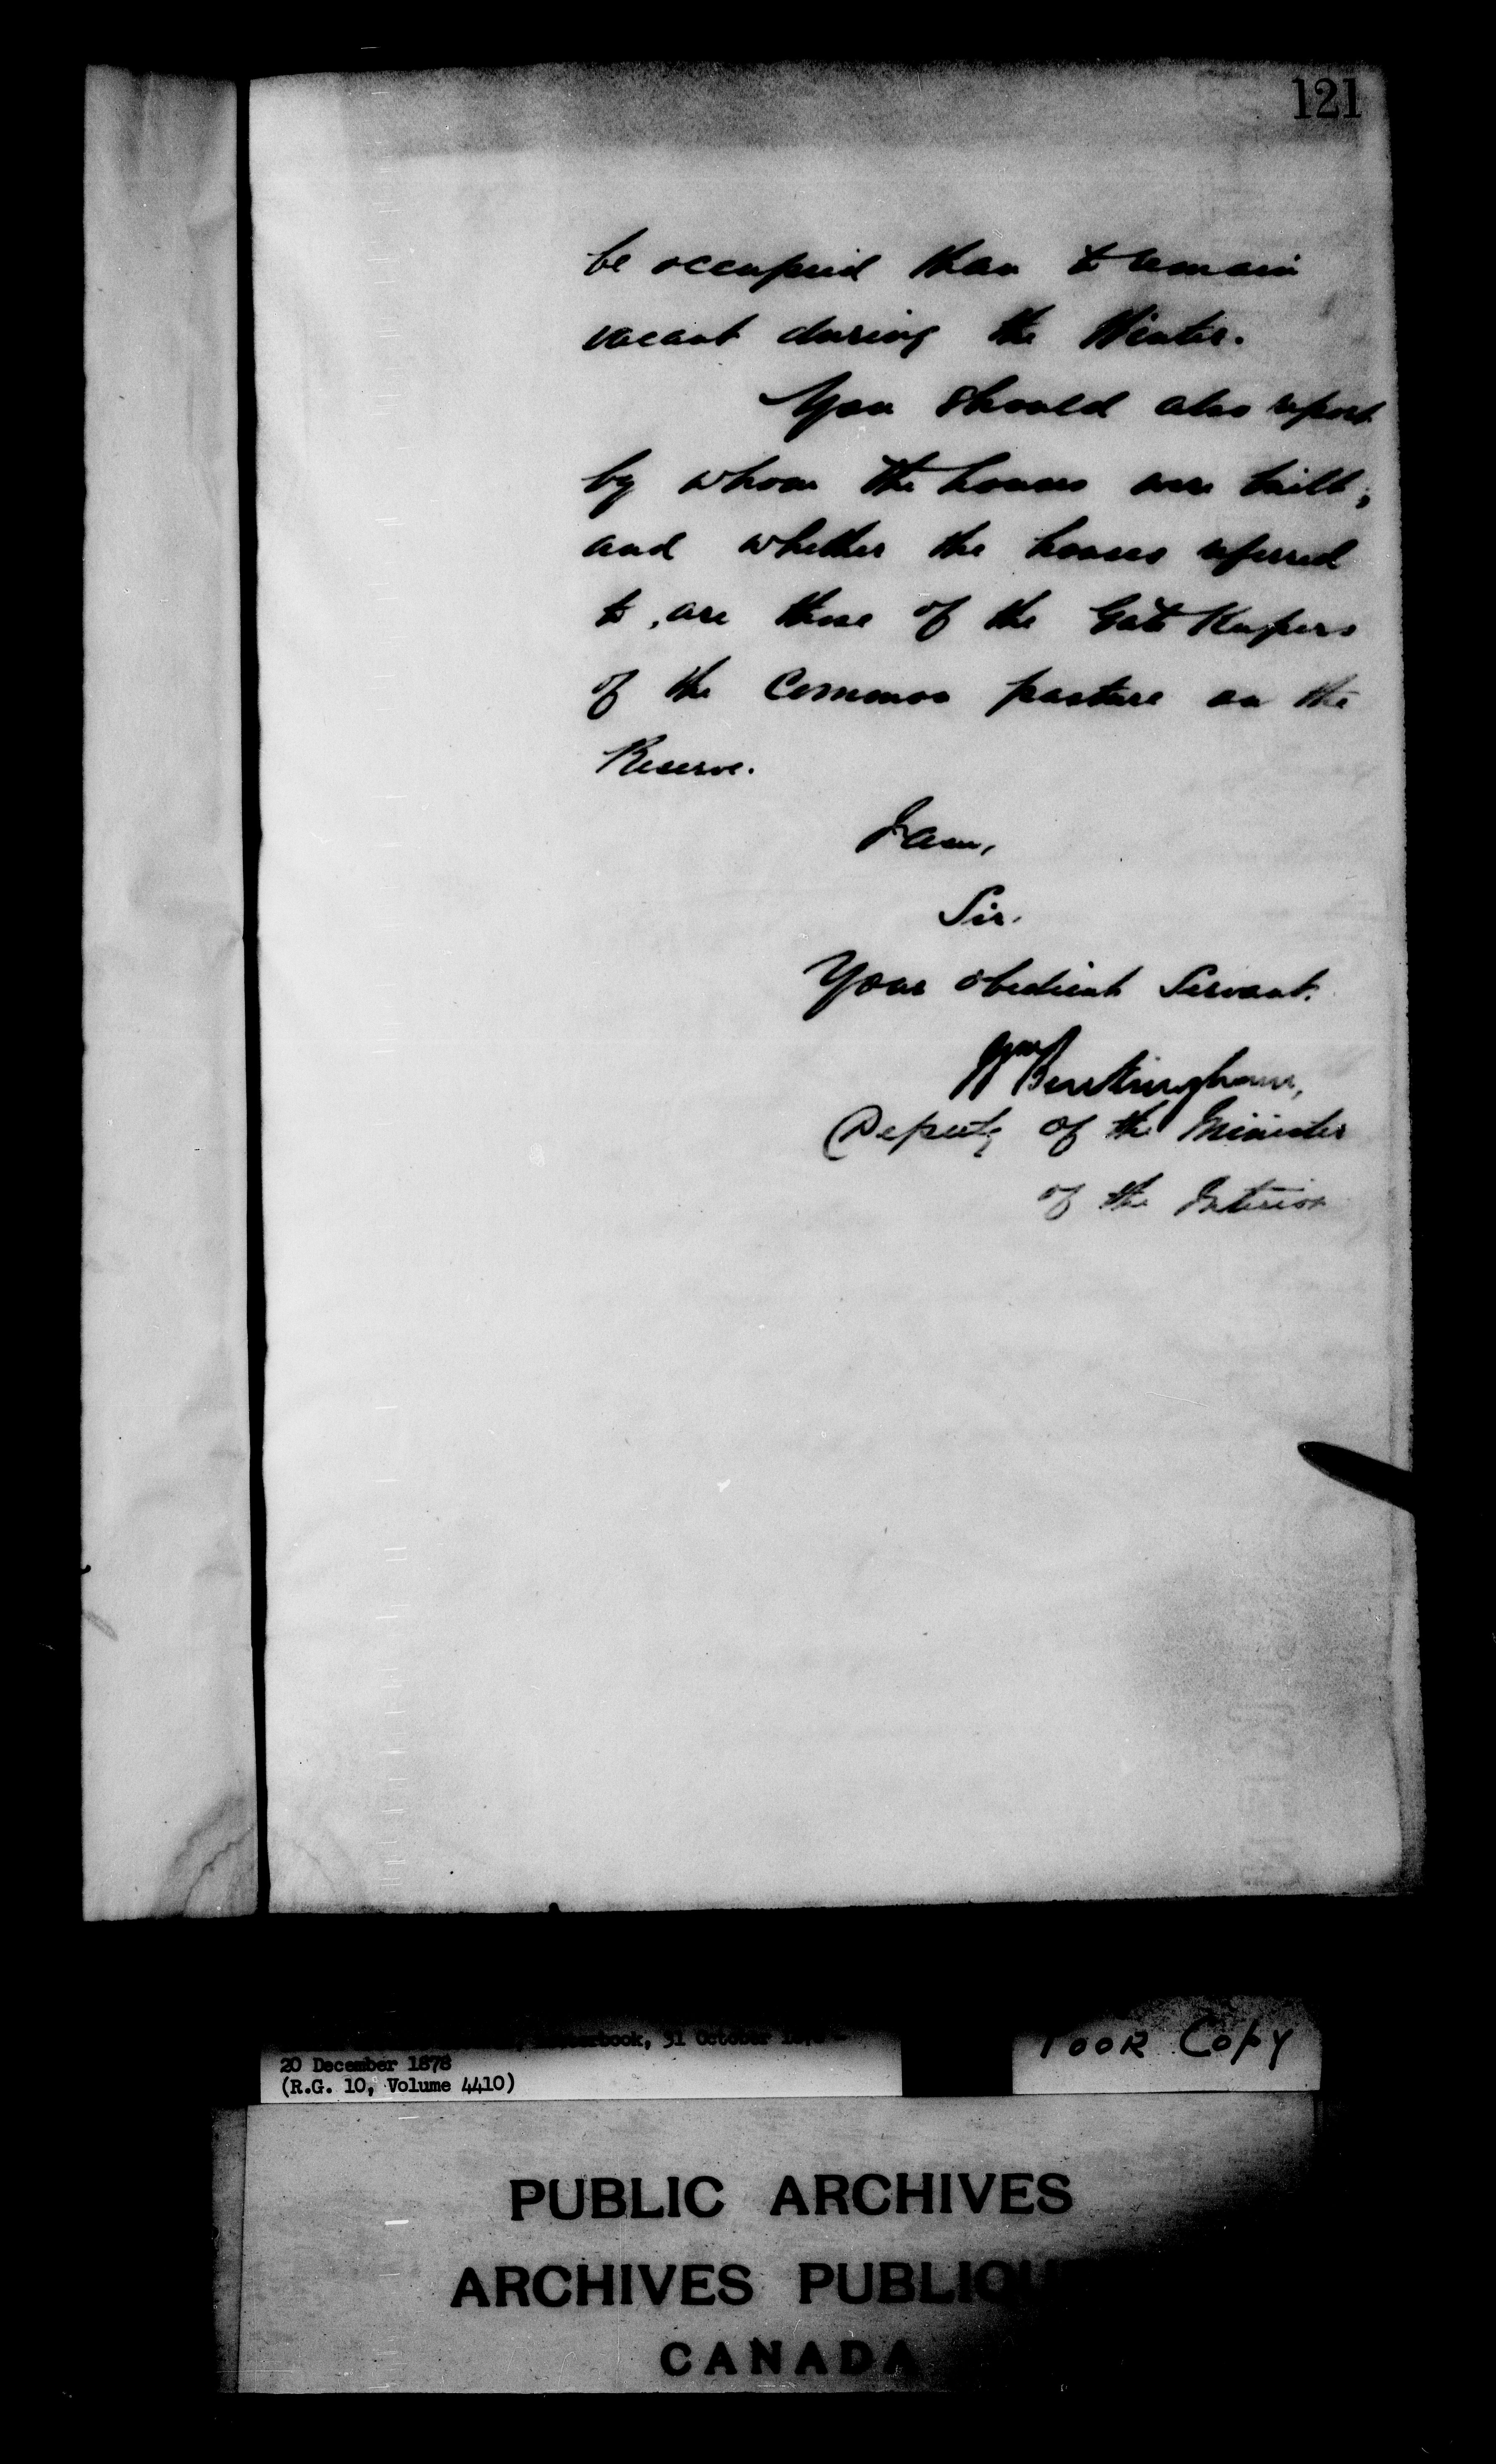 121
be occupied than to remain
vacant during the Winter.
You should also report
by whom the houses were built,
and whether the houses referred
to, are those of the Gate Keepers
of the Common pasture on the
Reserve.
I am,
Sir.
Your obedient Servant.
Wm Buckingham,
Deputy of the Minister
of the Interior
book, 31 October
20 December 1878
(R.G. 10, Volume 4410)
Poor Copy
PUBLIC ARCHIVES
ARCHIVES PUBLIQU
CANADA